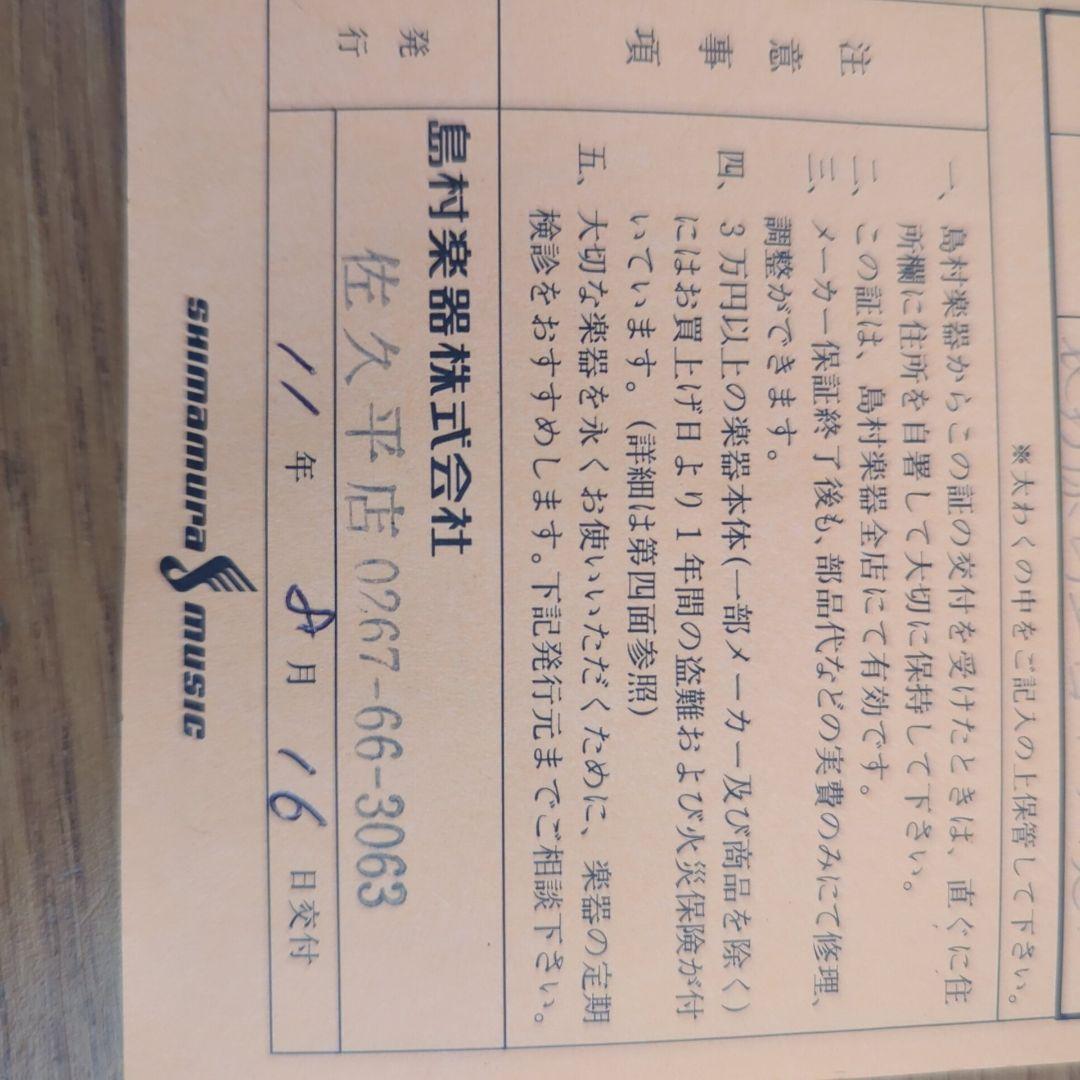 ※太わくの中をご記入の上保管して下さい。
注意事項
一、島村楽器からこの証の交付を受けたときは、直ぐに住
所欄に住所を自署して大切に保持して下さい。
二、この証は、島村楽器全店にて有効です。
三、メーカー保証終了後も、部品代などの実費のみにて修理、
調整ができます。
四、3万円以上の楽器本体(一部メーカー及び商品を除く)
にはお買上げ日より1年間の盗難および火災保険が付
いています。(詳細は第四面参照)
五、大切な楽器を永くお使いいただくために、楽器の定期
検診をおすすめします。下記発行元までご相談下さい。
発行
島村楽器株式会社
佐久平店 0267-66-3063
11年 8月 16日交付
SHIMAMURA MUSIC